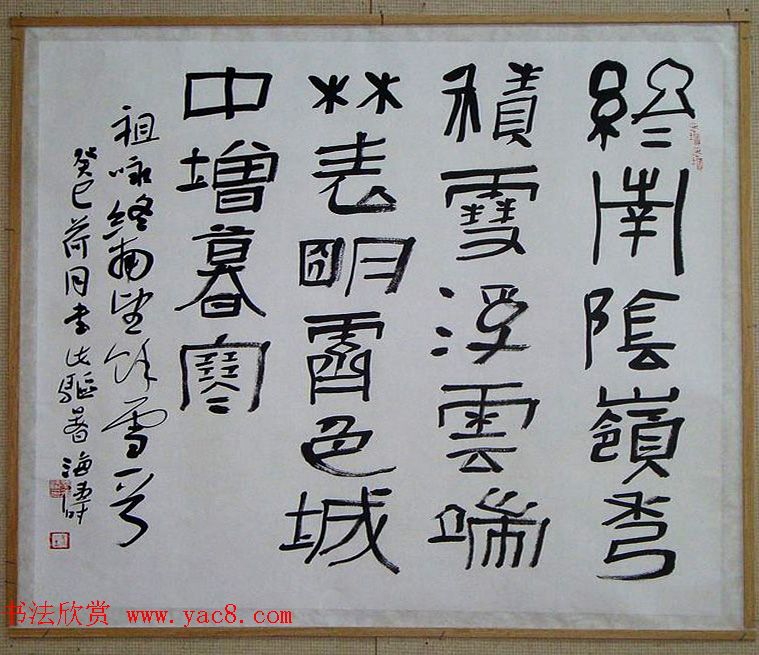 終南陰嶺秀
積雪浮雲端
林表明霽色城
中增暮寒
祖咏終南望餘雪一首
癸巳荷月書以驅暑 海濤
书法欣赏 www.yac8.com